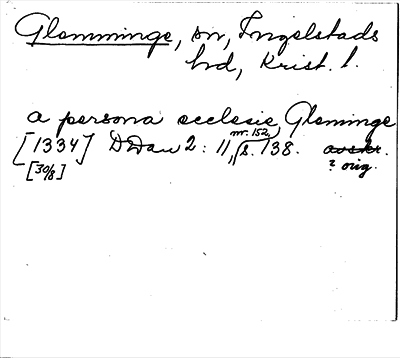 Glemminge, sn, Ingelstads
hd, Krist. l.
a persona ecclesie Gleminge
[1334] DDan 2:11, nr. 152, s. 138. avskr.
[30/8] ? orig.